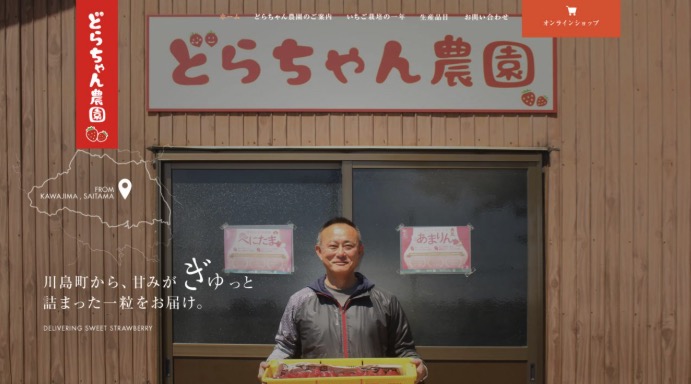 ホーム
どらちゃん農園のご案内
いちご栽培の一年
生産品目
お問い合わせ
オンラインショップ
どらちゃん農園
どらちゃん農園
FROM
KAWAJIMA , SAITAMA
べにたま
あまりん
川島町から、甘みがぎゅっと
詰まった一粒をお届け。
DELIVERING SWEET STRAWBERRY